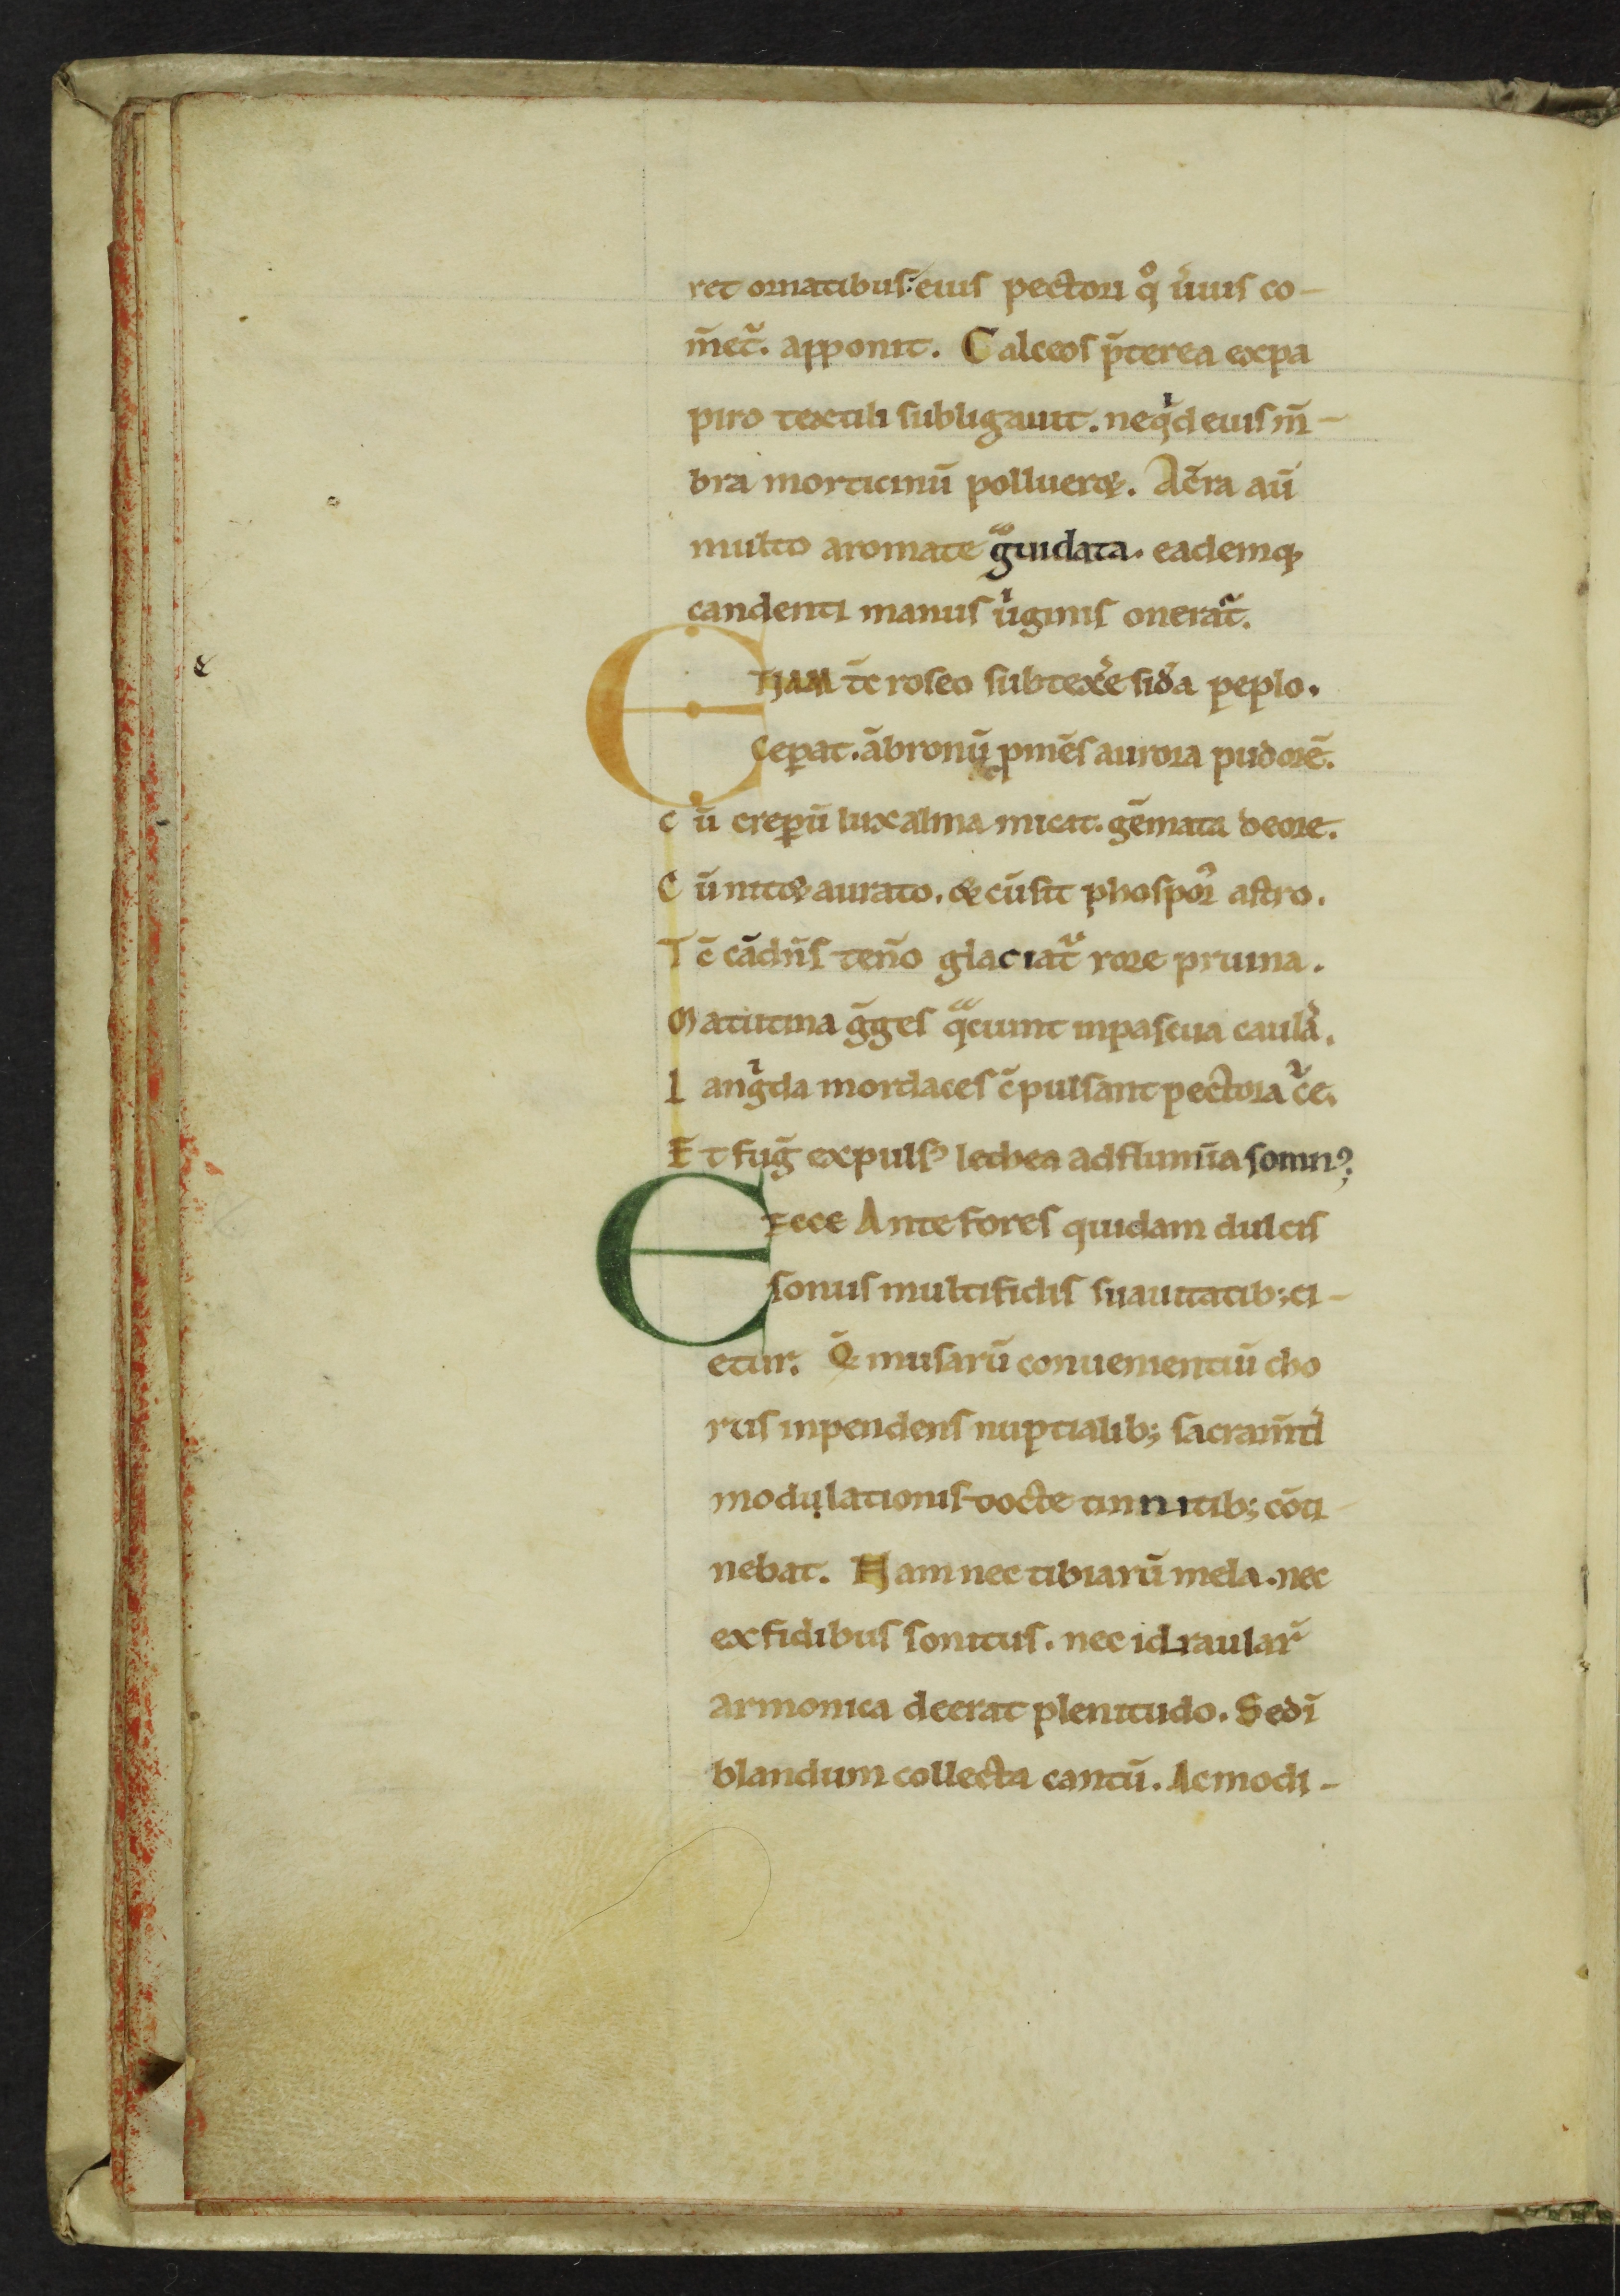 ret ornatibus: eius pectori qͦ uiuis co-
m̄et᷑. apponit. Calceos p̄terea ex pa
piro textili subligauit. neqͥd eius m̄-
bra morticinū polluer&. Ac̄ra aū
multo aromate gᷓuidata. eademq;
candenti manus uͥginis onerat᷑.
E Tiam tc̄ roseo subtexe͛ sid͛a peplo.
Ceꝑat. ābronū ꝓmēs aurora pudorē.
C ū creꝑū lux alma micat. gēmata deore.
C ū nit& aurato. & cū sit phospor᷑ astro.
T c̄ cādn̄s ten͛o glaciat᷑ rore pruina.
M atutina ḡges qᷓciunt in pascua caula͛.
L angͥda mordaces c̄ pulsant pectora c᷑e.
E t fug̃ expulsꝰ lethea ad flumīa somnꝰ;
E Ecce Ante fores quidam dulcis
sonus multifidis suauitatib; ci-
etur. Q̄ musarū conuenientiū cho
rus inpendens nuptialib; sacram̄ti
modulationis docte tinnitib; cōci-
nebat. Nam nec tibiarū mela. nec
ex fidibus sonitus. nec idraular᷑
armonica deerat plenitudo. Sed ī
blandum collecta cantū. Ac modi-